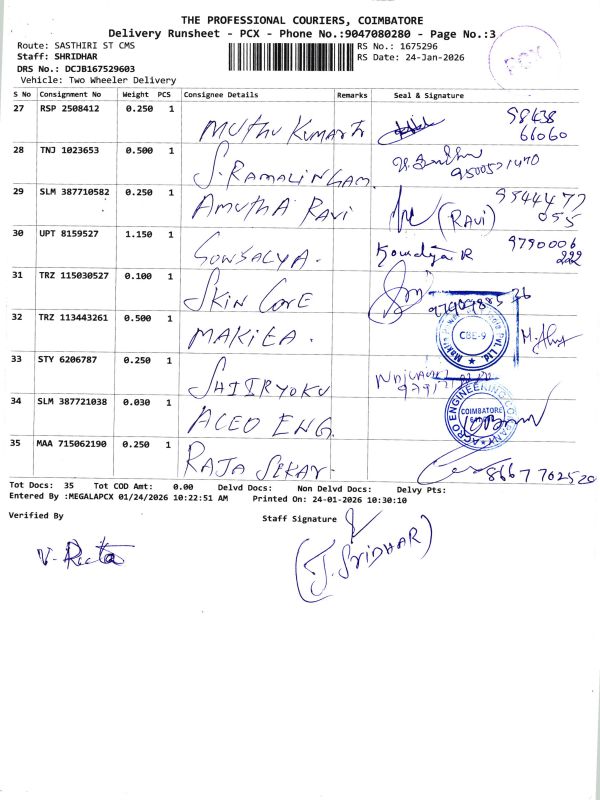 THE PROFESSIONAL COURIERS, COIMBATORE
Delivery Runsheet - PCX - Phone No.:9047080280 - Page No.:3
Route: SASTHIRI ST CMS
RS No.: 1675296
Staff: SHRIDHAR
RS Date: 24-Jan-2026
DRS No.: DCJB167529603
Vehicle: Two Wheeler Delivery
PCX
S No Consignment No Weight PCS Consignee Details Remarks Seal & Signature
27 RSP 2508412 0.250 1 Muthu Kumar 98438
66060
28 TNJ 1023653 0.500 1 S. RAMALINGAM 9500521470
29 SLM 387710582 0.250 1 AMUTHA RAVI (RAVI) 9544477
055
30 UPT 8159527 1.150 1 GOWSALYA. Kowdya R 9790006
222
31 TRZ 115030527 0.100 1 SKIN CORE
32 TRZ 113443261 0.500 1 MAKITA. CBE-9 Pvt. Ltd
33 STY 6206787 0.250 1 SHIIRYOKU
34 SLM 387721038 0.030 1 ACEO ENG. ACRO ENGINEERING COMPANY COIMBATORE
35 MAA 715062190 0.250 1 RAJA SEKAR 8667702520
Tot Docs: 35 Tot COD Amt: 0.00 Delvd Docs: Non Delvd Docs: Delvy Pts:
Entered By :MEGALAPCX 01/24/2026 10:22:51 AM Printed On: 24-01-2026 10:30:10
Verified By
Staff Signature
(J. SRIDHAR)